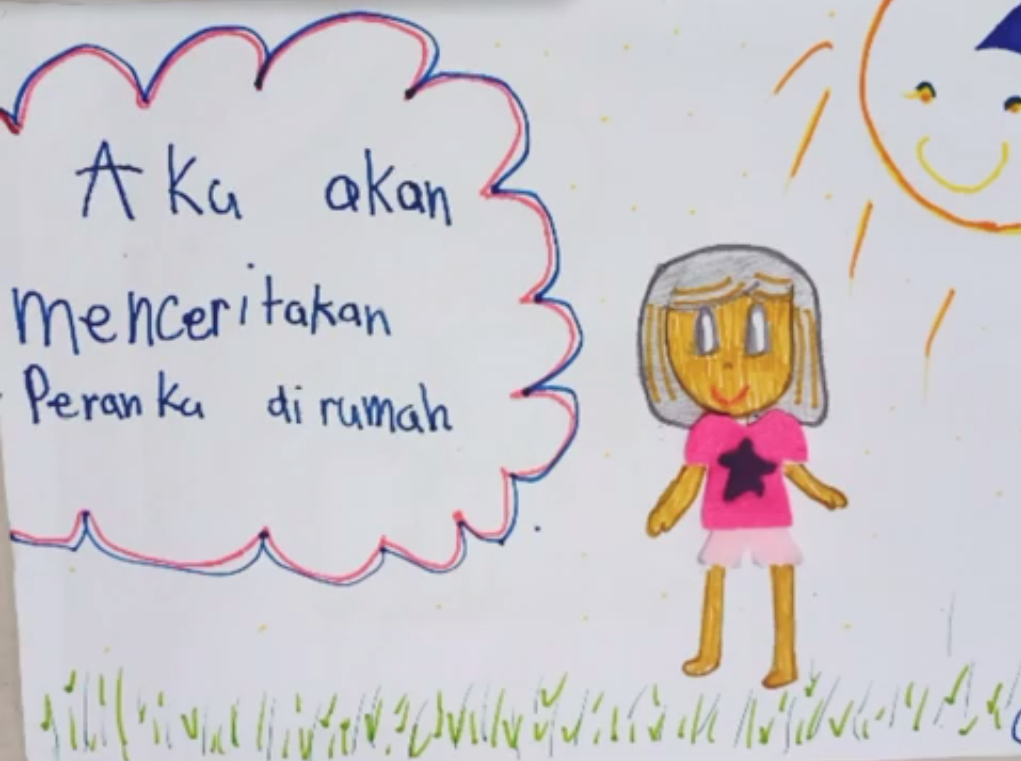 Aku akan
menceritakan
Peranku di rumah